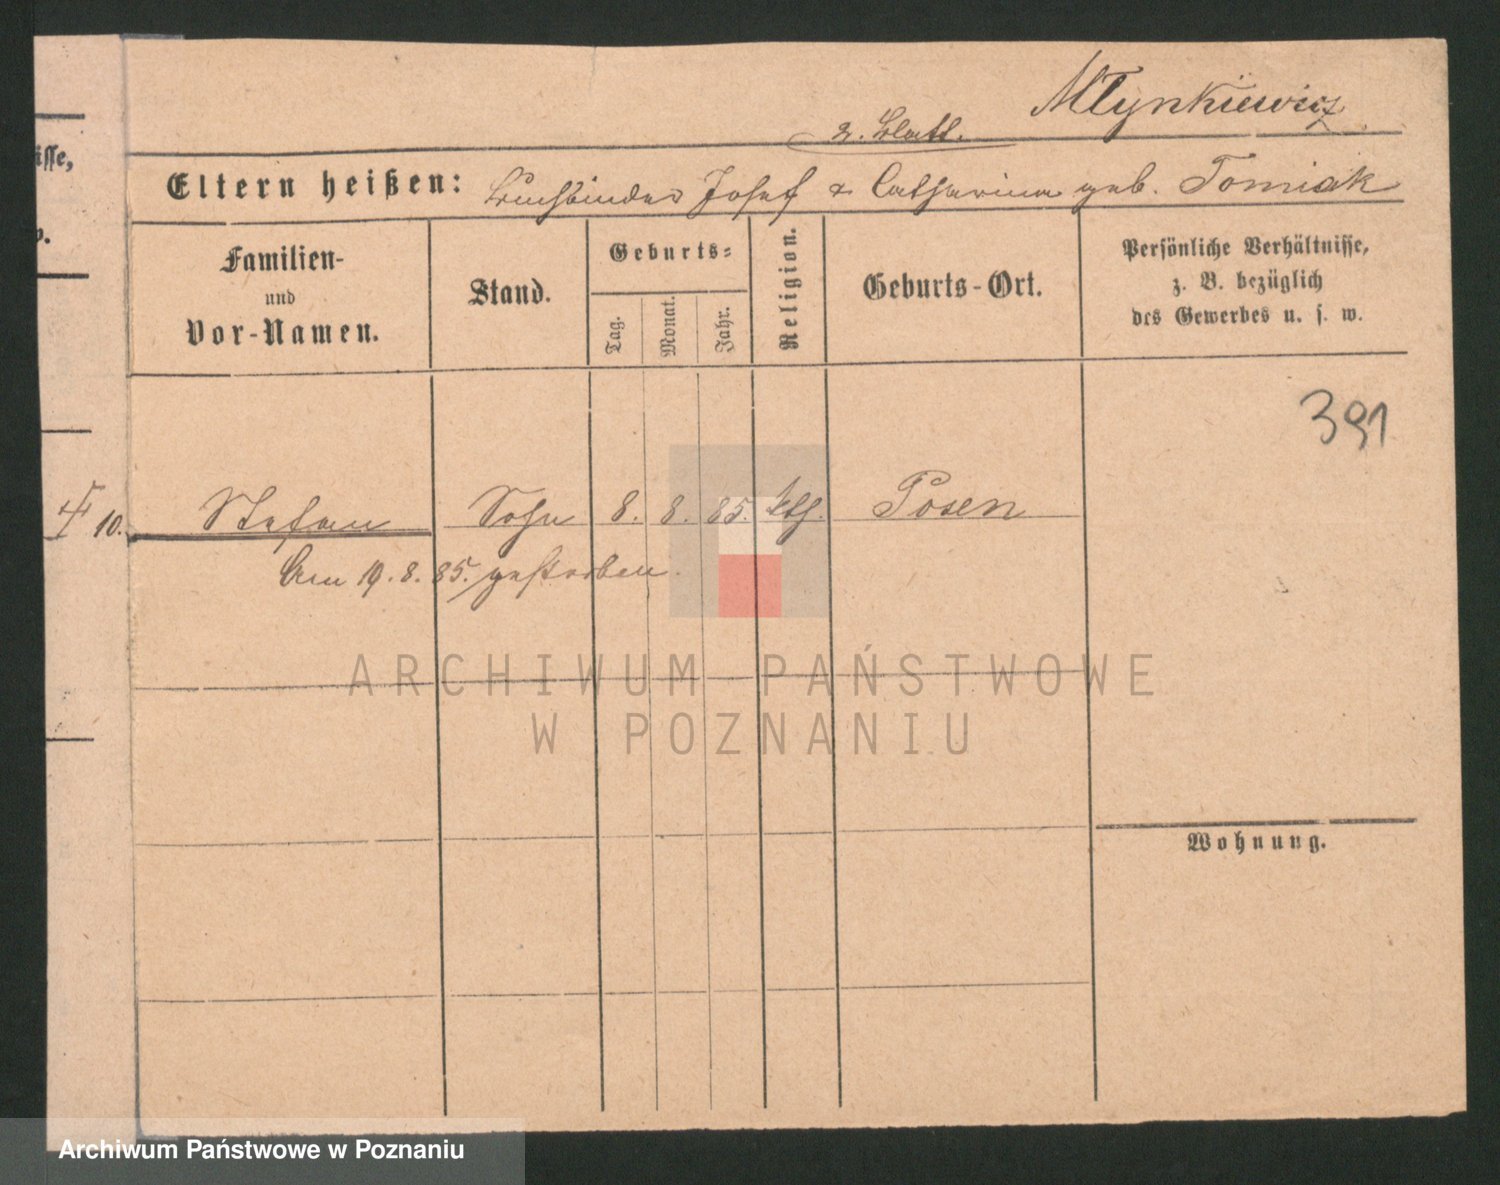 Młynkiewicz
2. Blatt.
Eltern heißen: Buchbinder Josef & Catharina geb. Tomiak
isse,
Familien-
und
Vor-Namen.
Stand.
Geburts-
Tag.
Monat.
Jahr.
Religion.
Geburts-Ort.
Persönliche Verhältnisse,
z. B. bezüglich
des Gewerbes u. s. w.
391
10. Stefan Sohn 8. 8. 85. kth. Posen
Am 19. 8. 85. gestorben.
ARCHIWUM PAŃSTWOWE
W POZNANIU
Wohnung.
Archiwum Państwowe w Poznaniu